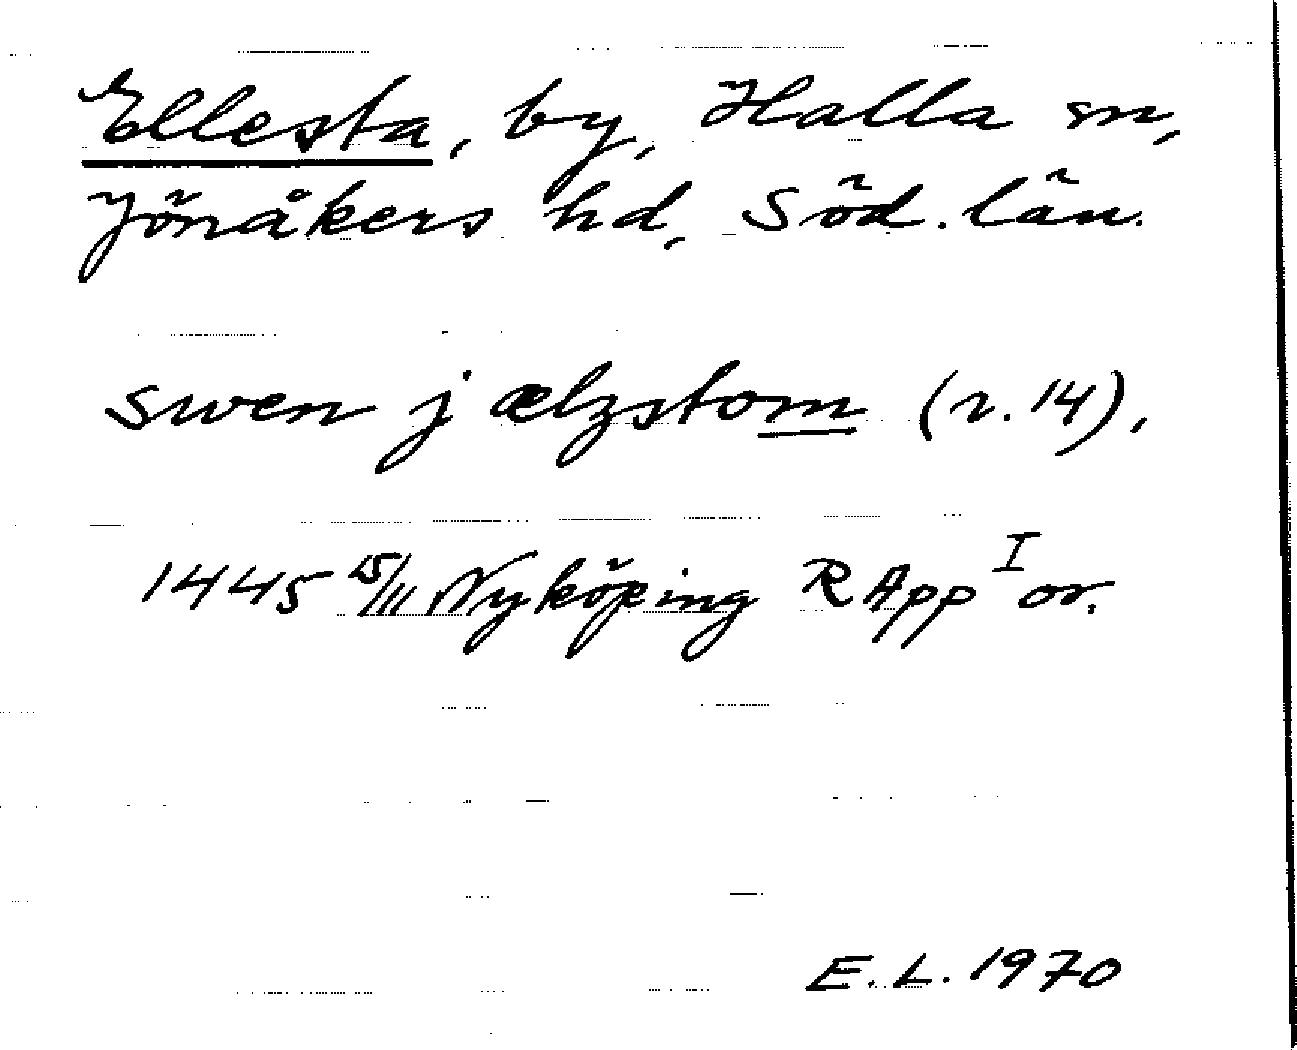 Ellesta, by, Halla sn,
Jönåkers hd, Söd. län.
swen j ælzstom (r. 14),
1445 15/III Nyköping RApp I or.
E.L. 1970